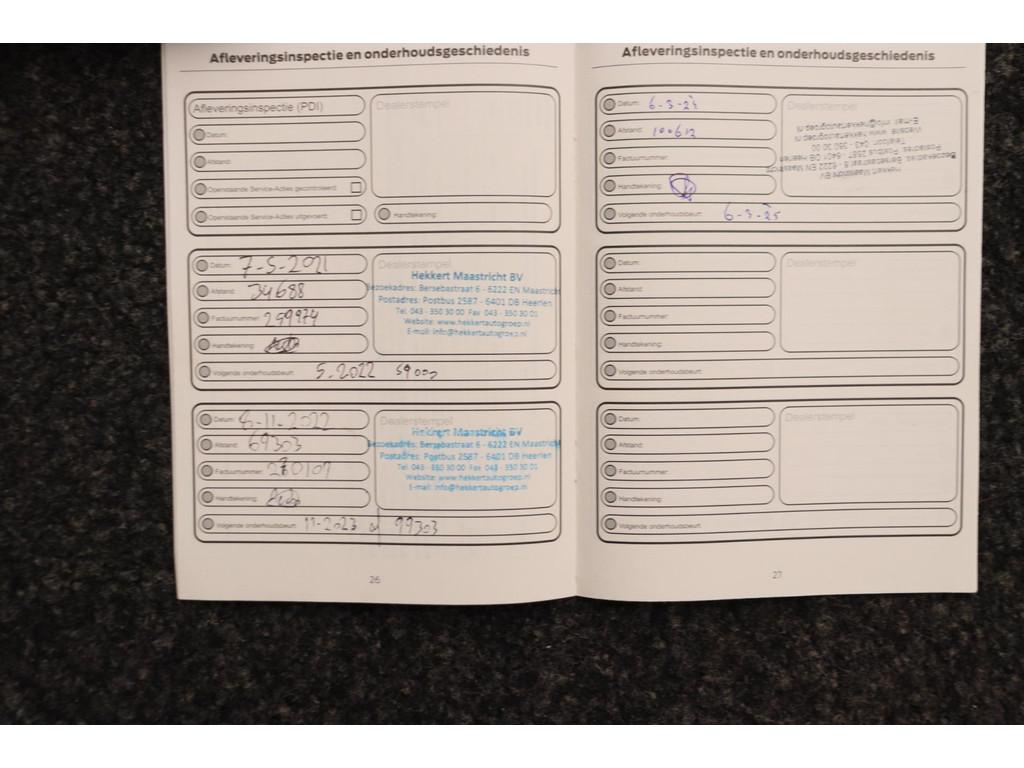 Afleveringsinspectie en onderhoudsgeschiedenis
Afleveringsinspectie (PDI)
Dealerstempel
Datum:
Afstand:
Openstaande Service-Acties gecontroleerd:
Openstaande Service-Acties uitgevoerd:
Handtekening:
Datum: 7-5-2021
Afstand: 34688
Factuurnummer: 259974
Handtekening:
Dealerstempel
Hekkert Maastricht BV
Bezoekadres: Bersebastraat 6 - 6222 EN Maastricht
Postadres: Postbus 2587 - 6401 DB Heerlen
Tel. 043 - 350 30 00 Fax 043 - 350 30 01
Website: www.hekkertautogroep.nl
E-mail: info@hekkertautogroep.nl
Volgende onderhoudsbeurt: 5.2022 59000
Datum: 8-11-2022
Afstand: 69303
Factuurnummer: 270107
Handtekening:
Dealerstempel
Hekkert Maastricht BV
Bezoekadres: Bersebastraat 6 - 6222 EN Maastricht
Postadres: Postbus 2587 - 6401 DB Heerlen
Tel. 043 - 350 30 00 Fax 043 - 350 30 01
Website: www.hekkertautogroep.nl
E-mail: info@hekkertautogroep.nl
Volgende onderhoudsbeurt: 11-2023 of 99303
26
Afleveringsinspectie en onderhoudsgeschiedenis
Datum: 6-3-24
Afstand: 100612
Factuurnummer:
Handtekening:
Dealerstempel
Hekkert Maastricht BV
Bezoekadres: Bersebastraat 6 - 6222 EN Maastricht
Postadres: Postbus 2587 - 6401 DB Heerlen
Telefoon: 043 - 350 30 00
Website: www.hekkertautogroep.nl
E-mail: info@hekkertautogroep.nl
Volgende onderhoudsbeurt: 6-3-25
Datum:
Afstand:
Factuurnummer:
Handtekening:
Dealerstempel
Volgende onderhoudsbeurt:
Datum:
Afstand:
Factuurnummer:
Handtekening:
Dealerstempel
Volgende onderhoudsbeurt:
27